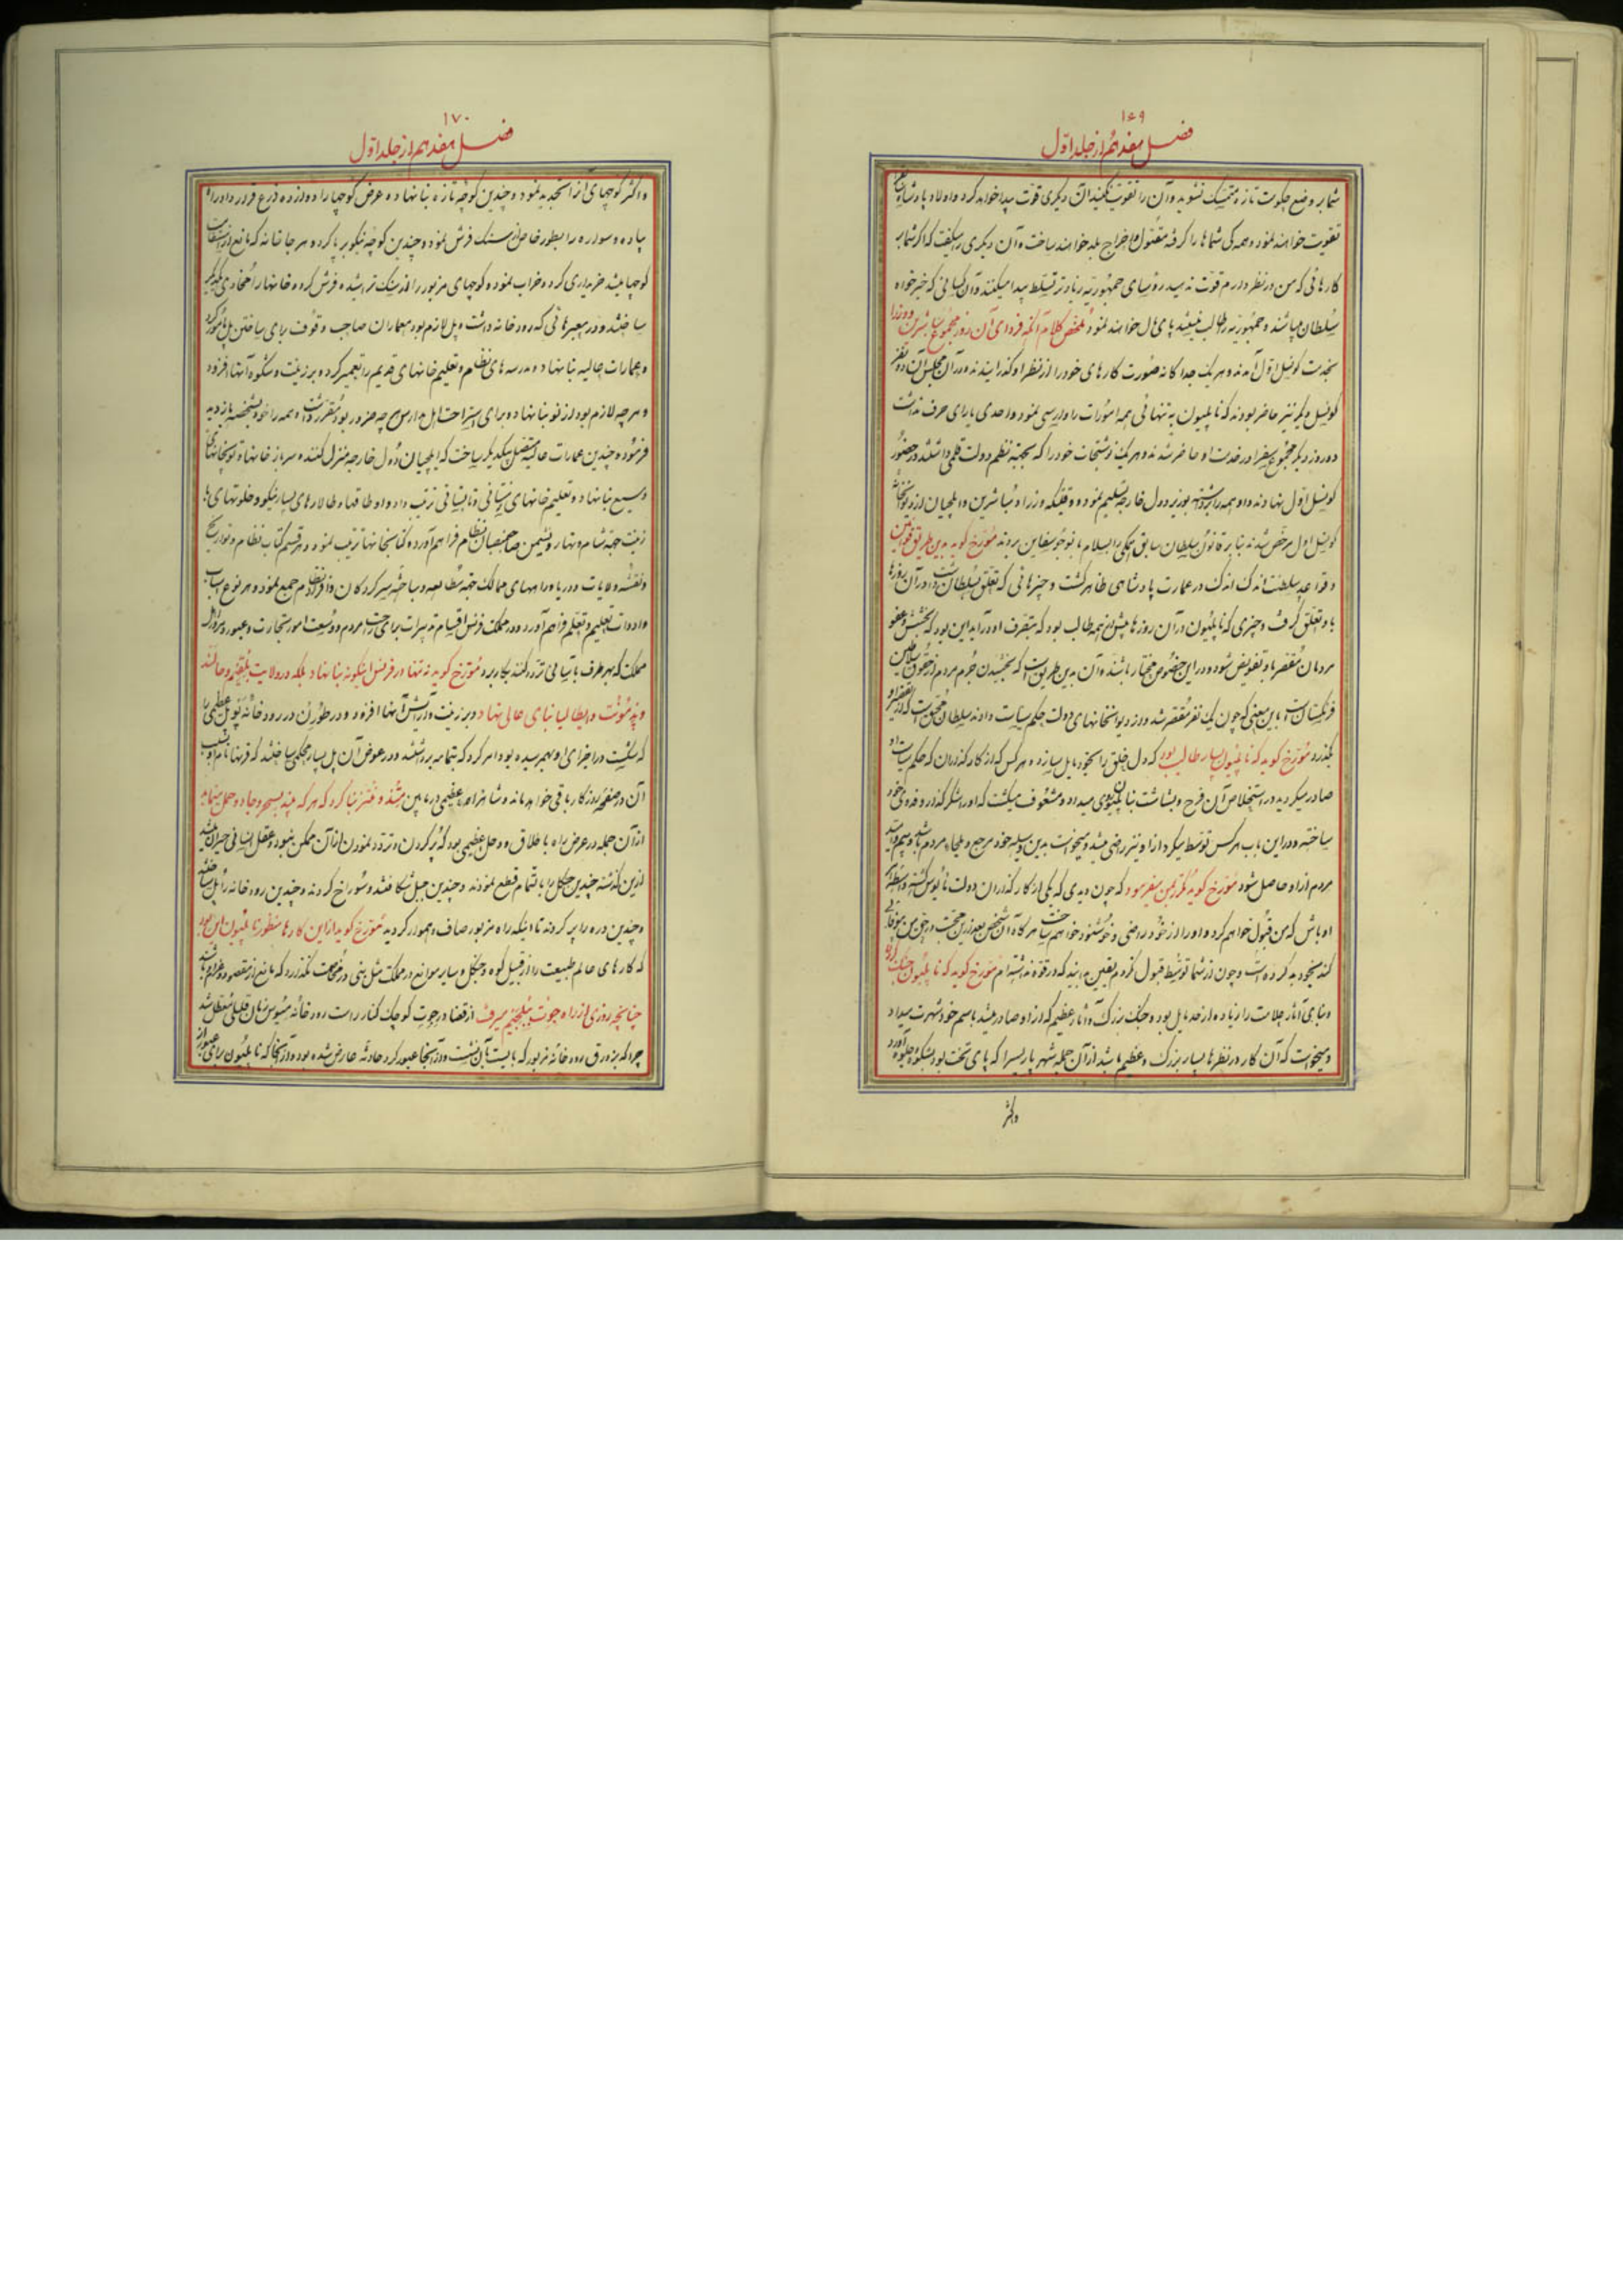 ۱۶۹
فصل هفدهم از جلد اول
شما بر وضع حکومت تازه متمسک نشوید و آن را تقویت نکنید الان دیگری قوت پیدا خواهد کرد و اولاد پادشاهان
تقویت خواهند نمود و همه کی شماها را گرفته مقتول و اخراج بلد خواهند ساخت و آن دیگری را میگفت که اگر شما بر
کارهائی که من در نظر دارم قوت ندهید رؤسای جمهوریه زیادتر تسلط پیدا میکنند و آن کسانی که خیرخواه
سلطان میباشند و جمهوریه را طالب نیستند پای مال خواهند نمود ملخص کلام آنکه فردای آن روز مجموع مباشرین و وزرا
بخدمت کونسل اول آمدند و هر یک جداگانه صورت کارهای خود را از نظر او گذرانیدند و در آن مجلس آن دو نفر
کونسل دیگر نیز حاضر بودند که ناپلیون به تنهائی همه امورات را وارسی نمود و احدی یارای حرف نداشت
و روز دیگر مجموع سفرا در خدمت او حاضر شدند و هر یک نوشتجات خود را که بجهة نظم دولت قلمی داشتند در حضور
کونسل اول نهادند و او همه را برداشته بوزیر دول خارجه تسلیم نمود و وقتیکه وزرا و مباشرین و ایلچیان از دیوانخانه
کونسل اول مرخص شدند بنا بر قانون سلطان سابق همگی را بسلام بانو جوسفاین بردند مورخ گوید بدین طریق قوانین
و قواعد سلطنت اندک اندک در عمارت پادشاهی ظاهر گشت و چیزهائی که تعلق بسلطان داشت در آن روزها
باو تعلق گرفت و چیزی که ناپلیون در آن روزها بیش از همه طالب بود که بتصرف او درآید این بود که بخشش و عفو
مردمان مقصر باو تفویض شود و در این خصوص مختار باشد و آن بدین طریق است که بخشیدن جرم مردم از حقوق سلاطین
فرنگستان است باین معنی که چون یک نفر مقصر شد و در دیوانخانهای دولت حکم سیاست دادند سلطان مختار است که از تقصیر او
بگذرد مورخ گوید که ناپلیون بسیار طالب بود که دل خلق را بخود مایل سازد و هر کس که از کارگذاران که حکم سیاست او
صادر میگردید در استخلاص آن فرح و بشاشت بناپلیون روی میداد و مشعوف میگشت که او را شکرگذار و فدوی خود
ساخته و در این باب هر کس توسط میکرد از او نیز راضی میشد و میخواست بدین وسیله خود مرجع و ملجاء مردم باشد و بیم و امید
مردم از او حاصل شود مورخ گوید مکرر بمن میفرمود که چون دیدی که یکی از کارگذاران دولت مأیوس گشته واسطه
او باش که من قبول خواهم کرد و او را از خود راضی و خوشنود خواهم ساخت
کند بخود بد کرده است و چون از شما توسط قبول نکردم یقین بدانید که در قوه نداشته‌ام مورخ گوید که ناپلیون جنگ کردن
و بنای آثار جلالت را زیاده از حد مایل بود و جنگ بزرگ و آثار عظیم که از او صادر میشد باسم خود شهرت میداد
و میخواست که آن کار در نظرها بسیار بزرگ و عظیم باشد از آن جمله شهر پاریس را که پای تخت بود بشکوه جلوه آورد
و اکثر
۱۷۰
فصل هفدهم از جلد اول
و اکثر کوچهای آن را تجدید نمود و چندین کوچه تازه بنا نهاده عرض کوچها را دوازده ذرع قرار داد و راه
پیاده و سواره را بطور خاص از سنگ فرش نمود و چندین کوچه نیکو برپا کرده و هر جا خانه که مانع از استقامت
کوچها میشد خریداری کرده خراب نمود و کوچهای مزبور را از سنگ تراشیده فرش کرده خانها را محاذی یکدیگر
ساختند و در معبرهائی که رودخانه داشت و پل لازم بود معماران صاحب وقوف برای ساختن پل مأمور کرد
و عمارات عالیه بنا نهاد و مدرسه‌های نظام و تعلیم خانهای قدیم را تعمیر کرده بر زینت و شکوه آنها افزود
و هر چه لازم بود از نو بنا نهاد و برای استراحت اهل مدارس هر چه ضرور بود مقرر داشت و همه را خود بشخصه بازدید
فرموده چندین عمارات عالیه متصل بیکدیگر ساخت که ایلچیان دول خارجه منزل کنند و سرباز خانها و توپخانهای
وسیع بنا نهاد و تعلیم خانهای زمستانی و تابستانی ترتیب داد و اوطاقها و طالارهای بسیار نیکو و خلوتهای با
زینت جهة شام و نهار و نشیمن صاحبمنصبان نظام فراهم آورده کتابخانها ترتیب نمود و هر قسم کتاب نظام و تواریخ
و نقشه ولایات و دریا و راههای ممالک جهة مطالعه و مباحثه سرکردگان و افراد نظام جمع نمود و هر نوع اسباب
و ادوات تعلیم و تعلم فراهم آورد و در مملکت فرنس اقسام تدبیرات برای راحت مردم و وسعت امور تجارت و عبور و مرور اهل
مملکت که بهر طرف بآسانی تردد کنند بکار برد مورخ گوید نه تنها در فرنس اینگونه بنا نهاد بلکه در ولایت بلجیم و هالند
و پیدمونت و ایطالیا بنای عالی نهاد و بر زینت و آرایش آنها افزود و در طورن در رودخانه پو پل عظیمی را
که شکست در اجزای او بهم رسیده بود امر کرد که بتمامه برداشتند و در عوض آن پل بسیار محکمی ساختند که قرنها نام او بسبب
آن در صفحه روزگار باقی خواهد ماند و شاهراه عظیمی در مابین متز و منتز بنا کرد که هر که بیند بسحر و جادو حمل مینماید
از آن جمله در عرض راه باطلاق و وحل عظیمی بود که پر کردن و تردد نمودن از آن ممکن نبود و عقل انسانی حیران میشد
از این گذشته چندین جنگل را بالتمام قطع نمودند و چندین جبل شکافتند و سوراخ کردند و چندین رودخانه را پل ساختند
و چندین دره را پر کردند تا اینکه راه مزبور صاف و هموار گردید مورخ گوید از این کارها منظور ناپلیون این بود
که کارهای عالم طبیعت را از قبیل کوه و جنگل و سایر موانع در مملکت مثل بنی در مخاصمت نگذارد که مانع از مقصود و مرام باشند
چنانچه روزی از راه جونت ببلجیم میرفت از قضا در جوت کوچک کنار راست رودخانه میوس زمان قلیلی معطل شد
چرا که بزورق رودخانه مزبور که بایست بآن نشست و از آنجا عبور کرد حادثه عارض شده بود و از آنجا که ناپلیون برای عبور از